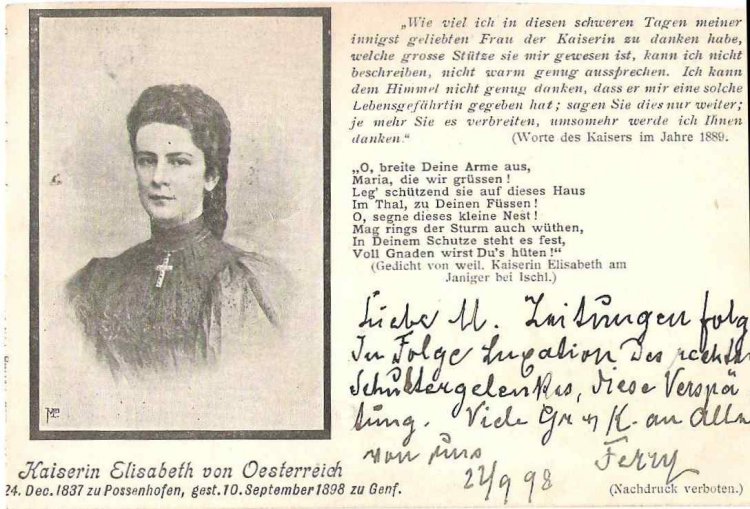 „Wie viel ich in diesen schweren Tagen meiner
innigst geliebten Frau der Kaiserin zu danken habe,
welche grosse Stütze sie mir gewesen ist, kann ich nicht
beschreiben, nicht warm genug aussprechen. Ich kann
dem Himmel nicht genug danken, dass er mir eine solche
Lebensgefährtin gegeben hat; sagen Sie dies nur weiter;
je mehr Sie es verbreiten, umsomehr werde ich Ihnen
danken.“ (Worte des Kaisers im Jahre 1889.
„O, breite Deine Arme aus,
Maria, die wir grüssen!
Leg' schützend sie auf dieses Haus
Im Thal, zu Deinen Füssen!
O, segne dieses kleine Nest!
Mag rings der Sturm auch wüthen,
In Deinem Schutze steht es fest,
Voll Gnaden wirst Du's hüten!“
(Gedicht von weil. Kaiserin Elisabeth am
Janiger bei Ischl.)
Liebe M. Zeitungen folg
In Folge Luxation des rechten
Schultergelenkes, diese Verspä
tung. Viele Gr u K. an Alle
von uns Ferry
22/9 98
(Nachdruck verboten.)
Kaiserin Elisabeth von Oesterreich
24. Dec. 1837 zu Possenhofen, gest. 10. September 1898 zu Genf.